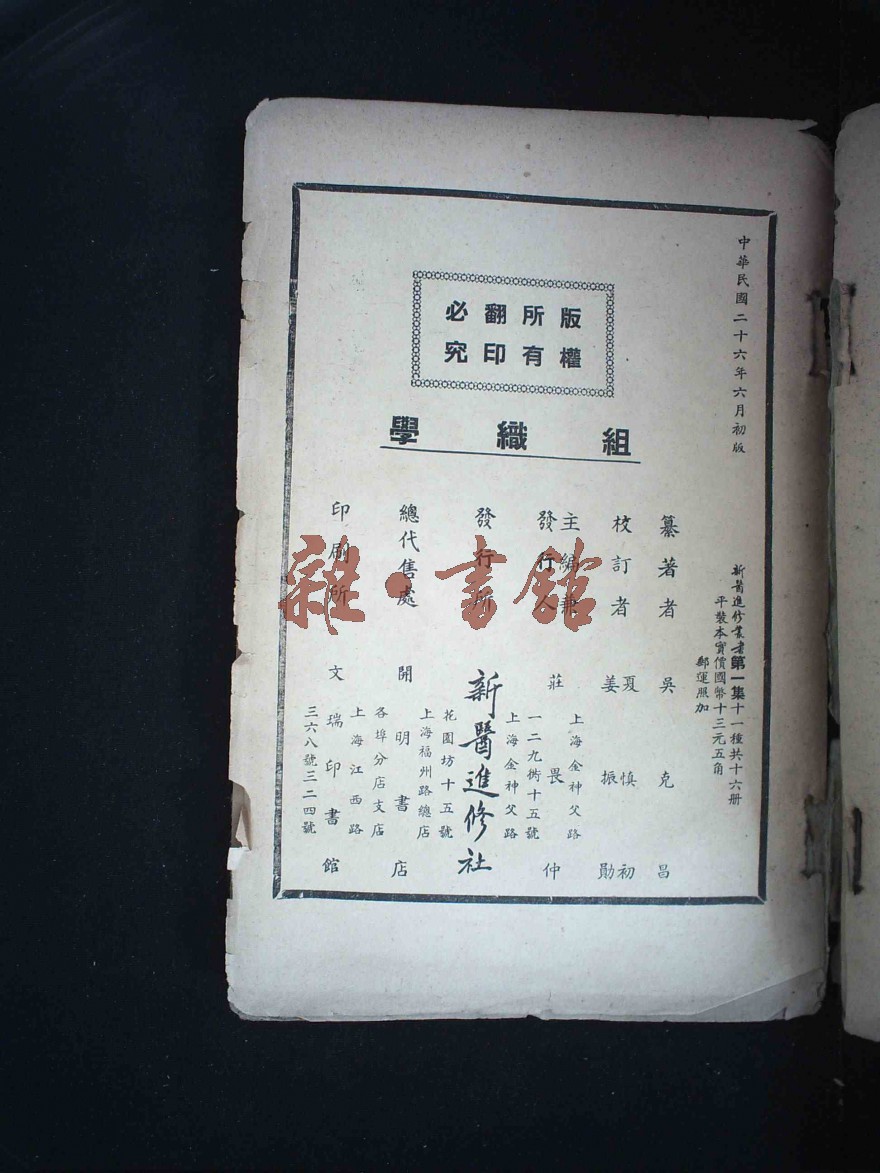 中華民國二十六年六月初版
版權
所有
翻印
必究
組織學
新醫進修叢書第一集十一種共十六册
平裝本實價國幣十三元五角
郵運照加
纂著者 吳克昌
校訂者 夏慎初
姜振勛
主編兼
發行人 莊畏仲
上海金神父路
一二九衖十五號
發行所 新醫進修社
上海金神父路
花園坊十五號
總代售處 開明書店
上海福州路總店
各埠分店支店
印刷所 文瑞印書館
上海江西路
三六八號三二四號
雜·書館